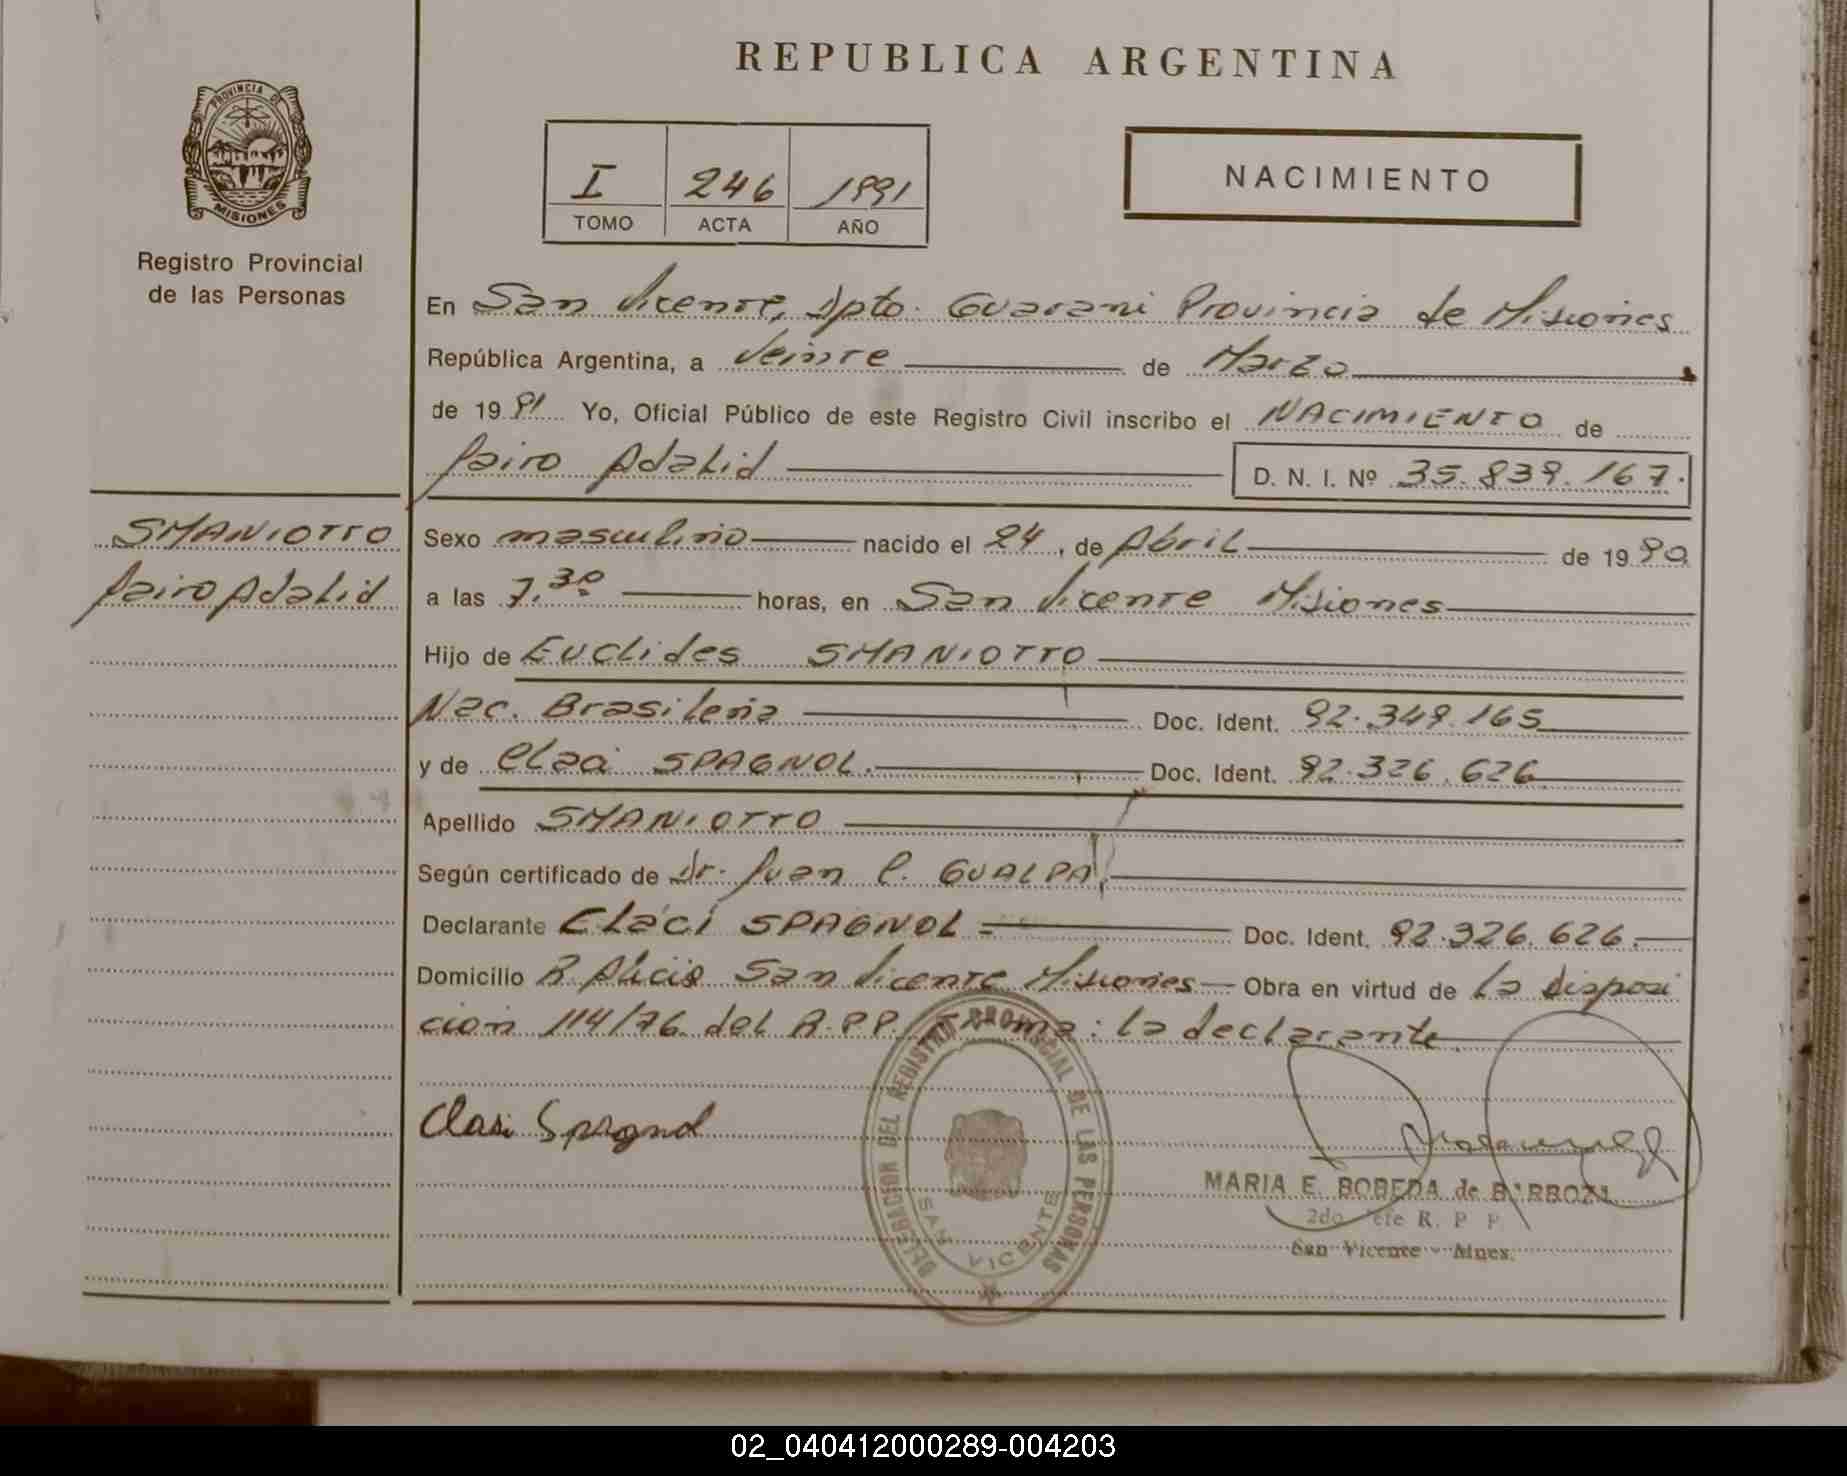 REPUBLICA ARGENTINA
PROVINCIA DE
MISIONES
Registro Provincial
de las Personas
I 246 1991
TOMO ACTA AÑO
NACIMIENTO
En San Vicente, Dpto. Guarani Provincia de Misiones
República Argentina, a Veinte de Marzo
de 19 91 Yo, Oficial Público de este Registro Civil inscribo el NACIMIENTO de
Jairo Adalid D. N. I. Nº 35.839.167.
SMANIOTTO
Jairo Adalid
Sexo masculino nacido el 24, de Abril de 19 90
a las 7.30 horas, en San Vicente Misiones
Hijo de Euclides SMANIOTTO
Nac. Brasileña Doc. Ident. 92.349.165
y de Elaci SPAGNOL. Doc. Ident. 92.326.626
Apellido SMANIOTTO
Según certificado de Dr. Juan C. GUALPA
Declarante Elaci SPAGNOL = Doc. Ident. 92.326.626.
Domicilio P. Alicia San Vicente Misiones Obra en virtud de la disposi
ción 114/76 del R.P.P. Firma: la declarante.
Elasi Spagnol
DELEGACION DEL REGISTRO PROVINCIAL DE LAS PERSONAS
SAN VICENTE
MARIA E. BOBEDA de BARBOZA
2do Jefe R. P. P.
San Vicente - Mnes.
02_040412000289-004203